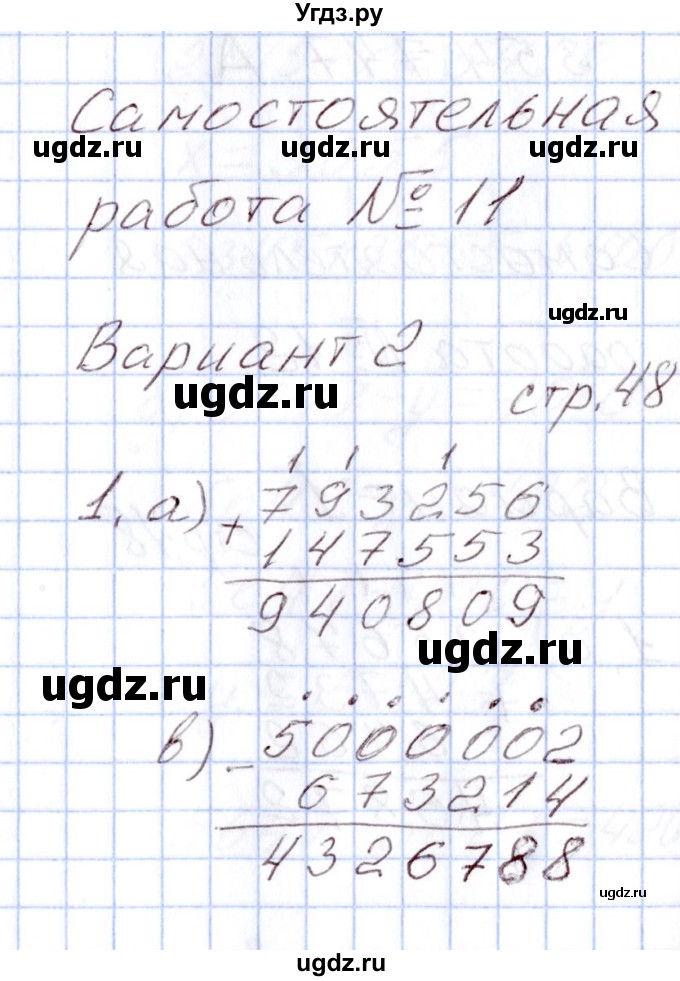 Угдз.ру
Самостоятельная
ugdz.ru ugdz.ru ugdz.ru
работа № 11
ugdz.ru
Вариант 2
ugdz.ru
стр. 48
1 1 1
1. а) + 793256
147553
940809
ugdz.ru
ugdz.ru
в) - 5000002
673214
4326788
ugdz.ru
ugdz.ru